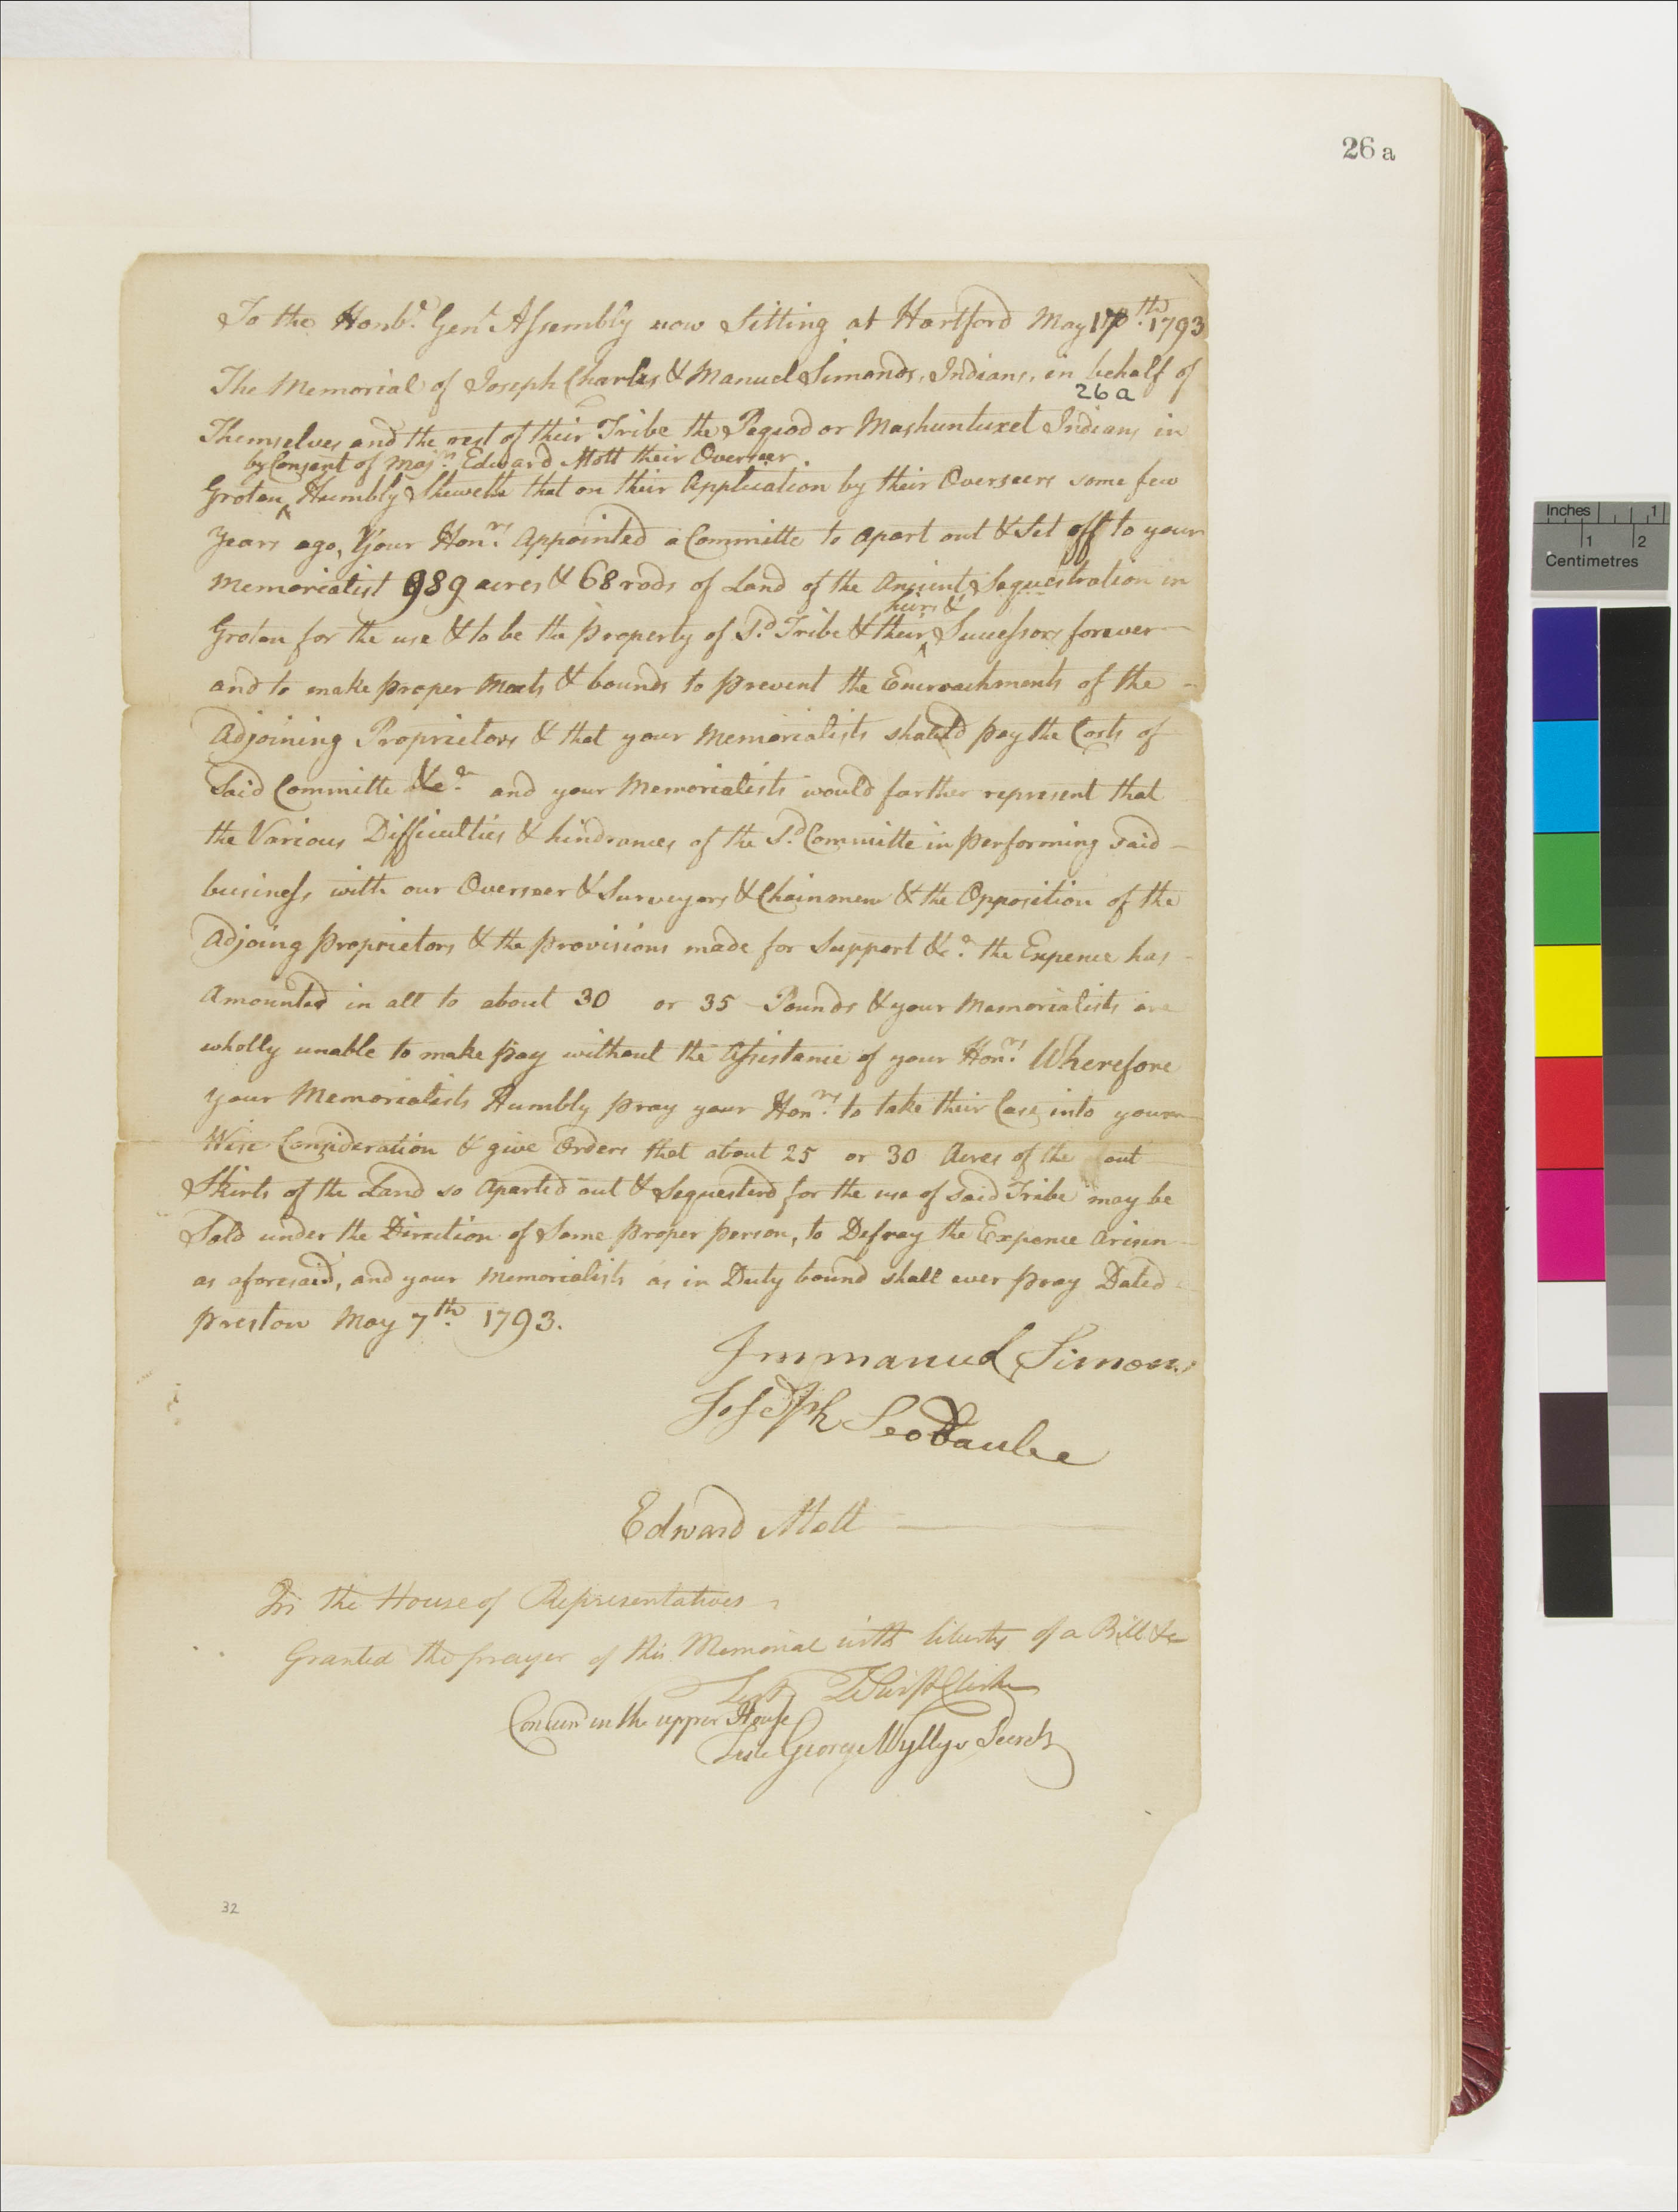 26 a
To the Honb.e Gen.l Assembly now Sitting at Hartford May 17th. 1793
The Memorial of Joseph Charles & Manuel Simonds, Indians, in behalf of
26a
Themselves and the rest of their Tribe the Pequod or Mashuntuxet Indians in
by Consent of Majr. Edward Mott their Overseer.
Groton ^ Humbly Sheweth that on their Application by their Overseers some few
Years ago, Your Hon.rs Appointed a Committe to apart out & Set off to your
Memorialist 989 acres & 68 rods of Land of the Ancient Sequestration in
heirs &
Groton for the use & to be the property of S.d Tribe & their ^ Successors forever
and to make proper Meets & bounds to prevent the Encroachments of the
Adjoining Proprietors & that your Memorialists should pay the Costs of
Said Committe &c.a and your Memorialists would farther represent that
the Various Difficulties & hindrances of the S.d Committe in performing said
business, with our Overseer & Surveyors & Chainmen & the Opposition of the
Adjoing proprietors & the provisions made for Support &c.a the Expence has
Amounted in all to about 30 or 35 Pounds & your Memorialists are
wholly unable to make pay without the Assistance of your Hon.rs Wherefore
your Memorialists Humbly pray your Hon.rs to take their Case into your
Wise Consideration & give Orders that about 25 or 30 Acres of the out
Skirts of the Land so Aparted out & Sequesterd for the use of said Tribe may be
Sold under the Direction of Some proper person, to Defray the Expence Arisen
as aforesaid, and your Memorialists as in Duty bound shall ever pray Dated
preston May 7th. 1793.
Immanuel Simons
Joseph
Edward Mott
In the House of Representatives
Granted the prayer of this Memorial with liberty of a Bill &c
Test Clerk
Concurd in the upper House
Teste George Wyllys Secrety
32
Inches 1
1 2
Centimetres